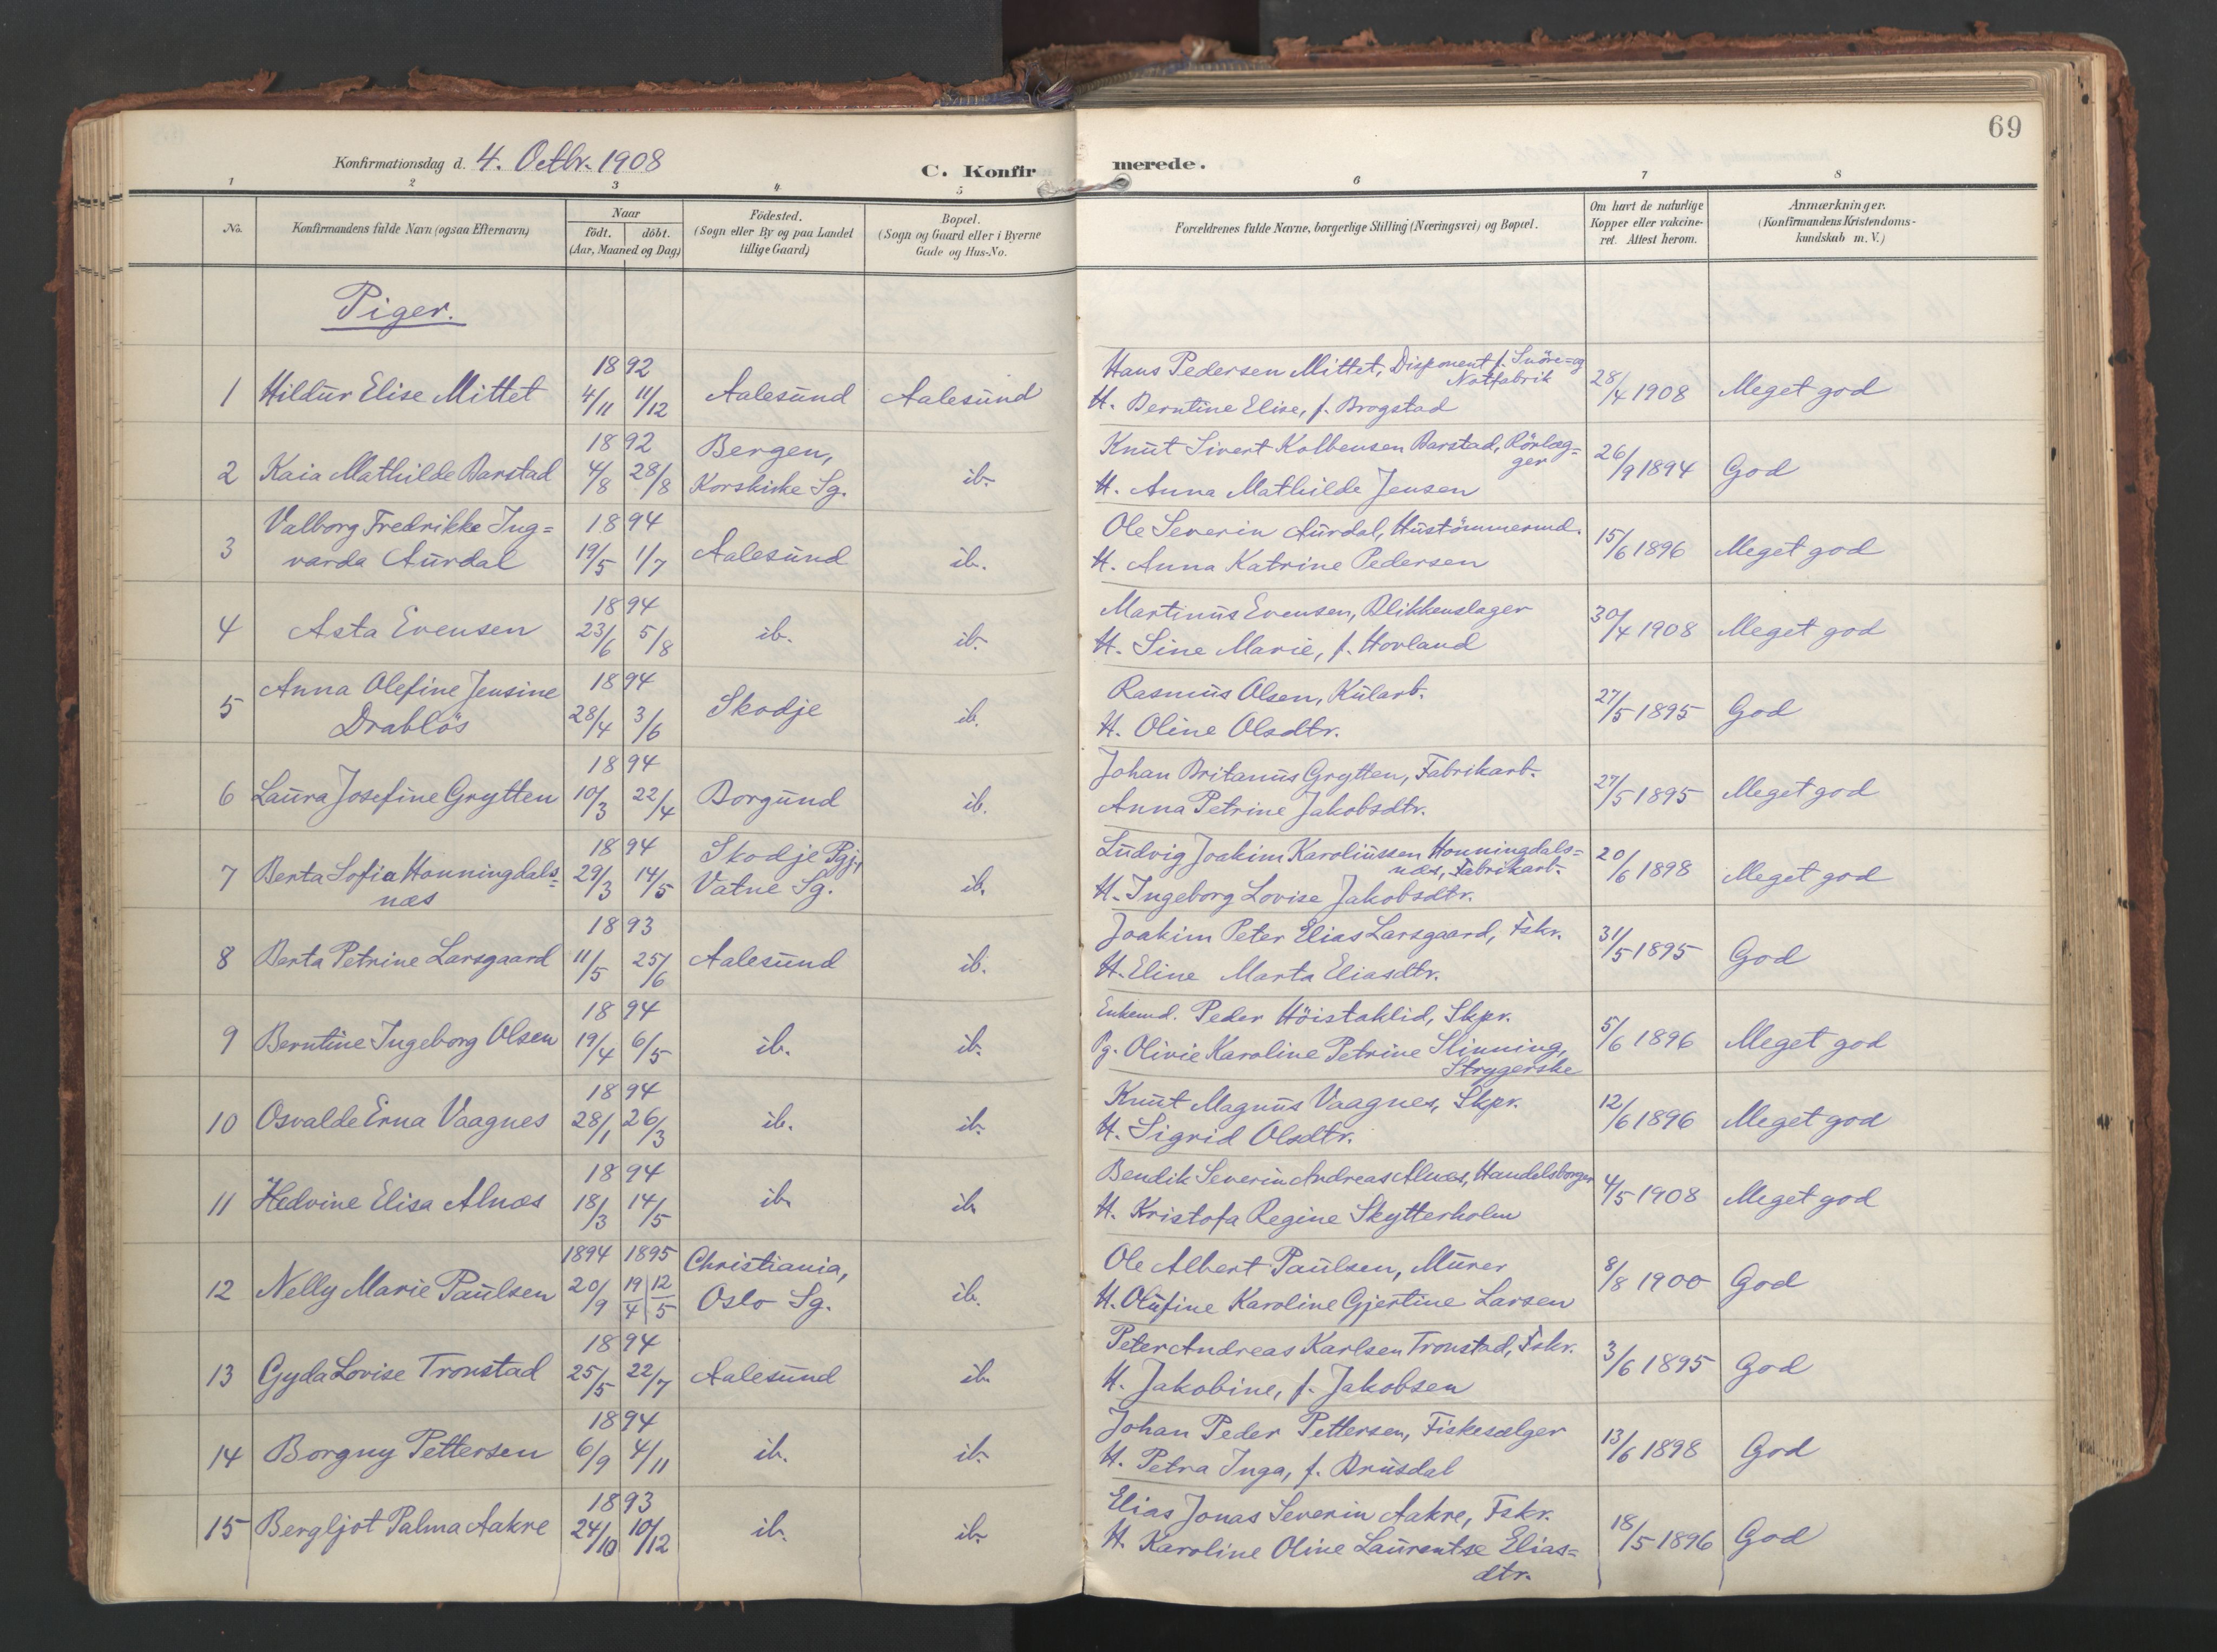 69
Konfirmationsdag d. 4. Octbr. 1908
C. Konfirmerede.
1 2 3 4 5 6 7 8
No.
Konfirmandens fulde Navn (ogsaa Efternavn)
Naar
födt. döbt.
(Aar, Maaned og Dag)
Födested.
(Sogn eller By og paa Landet
tillige Gaard)
Bopæl.
(Sogn og Gaard eller i Byerne
Gade og Hus-No.
Forældrenes fulde Navne, borgerlige Stilling (Næringsvei) og Bopæl.
Om havt de naturlige
Kopper eller vakcine-
ret. Attest herom.
Anmærkninger.
(Konfirmandens Kristendoms-
kundskab m. V.)
Piger.
1 Hildur Elise Mittet
1892
4/11 11/12
Aalesund
Aalesund
Hans Pedersen Mittet, Disponent f. Snöre- og
Notfabrik
H. Berntine Elise, f. Brogstad
28/4 1908
Meget god
2 Kaia Mathilde Barstad
1892
4/8 28/8
Bergen,
Korskirke Sg.
ib.
Knut Sivert Kolbensen Barstad, Rörlæg=
ger
H. Anna Mathilde Jensen
26/9 1894
God
3 Valborg Fredrikke Ing=
varda Aurdal
1894
19/5 1/7
Aalesund
ib.
Ole Severin Aurdal, Hustömmermd.
H. Anna Katrine Pedersen
15/6 1896
Meget god
4 Asta Evensen
1894
23/6 5/8
ib.
ib.
Martinus Evensen, Blikkenslager
H. Sine Marie, f. Hovland
30/4 1908
Meget god
5 Anna Olefine Jensine
Drablös
1894
28/4 3/6
Skodje
ib.
Rasmus Olsen, Kularb.
H. Oline Olsdtr.
27/5 1895
God
6 Laura Josefine Grytten
1894
10/3 22/4
Borgund
ib.
Johan Britanus Grytten, Fabrikarb.
Anna Petrine Jakobsdtr.
27/5 1895
Meget god
7 Berta Sofia Honningdals=
næs
1894
29/3 14/5
Skodje Pgj,
Vatne Sg.
ib.
Ludvig Joakim Karoliussen Honningdals=
næs, Fabrikarb.
H. Ingeborg Lovise Jakobsdtr.
20/6 1898
Meget god
8 Berta Petrine Larsgaard
1893
11/5 25/6
Aalesund
ib.
Joakim Peter Elias Larsgaard, Fskr.
H. Eline Marta Eliasdtr.
31/5 1895
God
9 Berntine Ingeborg Olsen
1894
19/4 6/5
ib.
ib.
Enkemd. Peder Höistaklid, Skpr.
Pg. Olivie Karoline Petrine Slinning,
Strygerske
5/6 1896
Meget god
10 Osvalde Erna Vaagnes
1894
28/1 26/3
ib.
ib.
Knut Magnus Vaagnes, Skpr.
H. Sigrid Olsdtr.
12/6 1896
Meget god
11 Hedvine Elisa Alnæs
1894
18/3 14/5
ib.
ib.
Bendik Severin Andreas Alnæs, Handelsborger
H. Kristofa Regine Skytterholm
4/5 1908
Meget god
12 Nelly Marie Paulsen
1894 1895
20/9 19/4 12/5
Christiania,
Oslo Sg.
ib.
Ole Albert Paulsen, Murer
H. Olufine Karoline Gjertine Larsen
8/8 1900
God
13 Gyda Lovise Tronstad
1894
25/5 22/7
Aalesund
ib.
Peter Andreas Karlsen Tronstad, Fskr.
H. Jakobine, f. Jakobsen
3/6 1895
God
14 Borgny Pettersen
1894
6/9 4/11
ib.
ib.
Johan Peder Pettersen, Fiskesælger
H. Petra Inga, f. Brusdal
13/6 1898
God
15 Bergljot Palma Aakre
1893
24/10 10/12
ib.
ib.
Elias Jonas Severin Aakre, Fskr.
H. Karoline Oline Laurentse Elias=
dtr.
18/5 1896
God